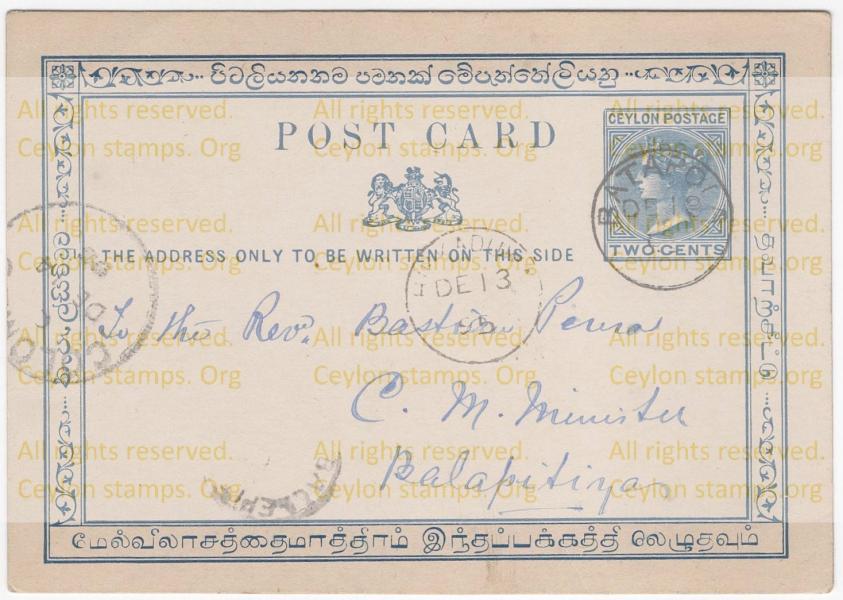 පිටලියනතම පමනක් මේපැත්තේලියනු
POST CARD
CEYLON POSTAGE
TWO CENTS
BATAPOL
DE 12
THE ADDRESS ONLY TO BE WRITTEN ON THIS SIDE
DE 13
To the Revd. Bastian
C. M. Minister
Balapitiya
COLOM
தபாற்சீட்டு
மேல்விலாசத்தைமாத்திரம் இந்தப்பக்கத்தி லெழுதவும்
All rights reserved.
Ceylon stamps. Org
All rights reserved.
Ceylon stamps. Org
All rights reserved.
Ceylon stamps. Org
All rights reserved.
Ceylon stamps. Org
All rights reserved.
Ceylon stamps. Org
All rights reserved.
Ceylon stamps. Org
All rights reserved.
Ceylon stamps. Org
All rights reserved.
Ceylon stamps. Org
All rights reserved.
Ceylon stamps. Org
All rights reserved.
Ceylon stamps. Org
All rights reserved.
Ceylon stamps. Org
All rights reserved.
Ceylon stamps. Org